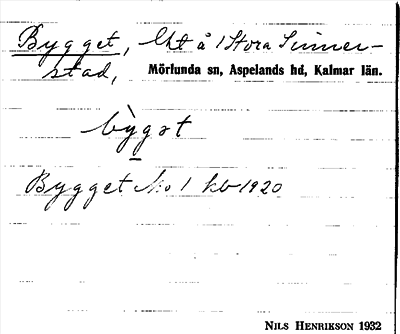 Bygget, lht å 1 Stora Sinner-
stad, Mörlunda sn, Aspelands hd, Kalmar län.
bỳgət
Bygget No 1 kb 1920
NILS HENRIKSON 1932